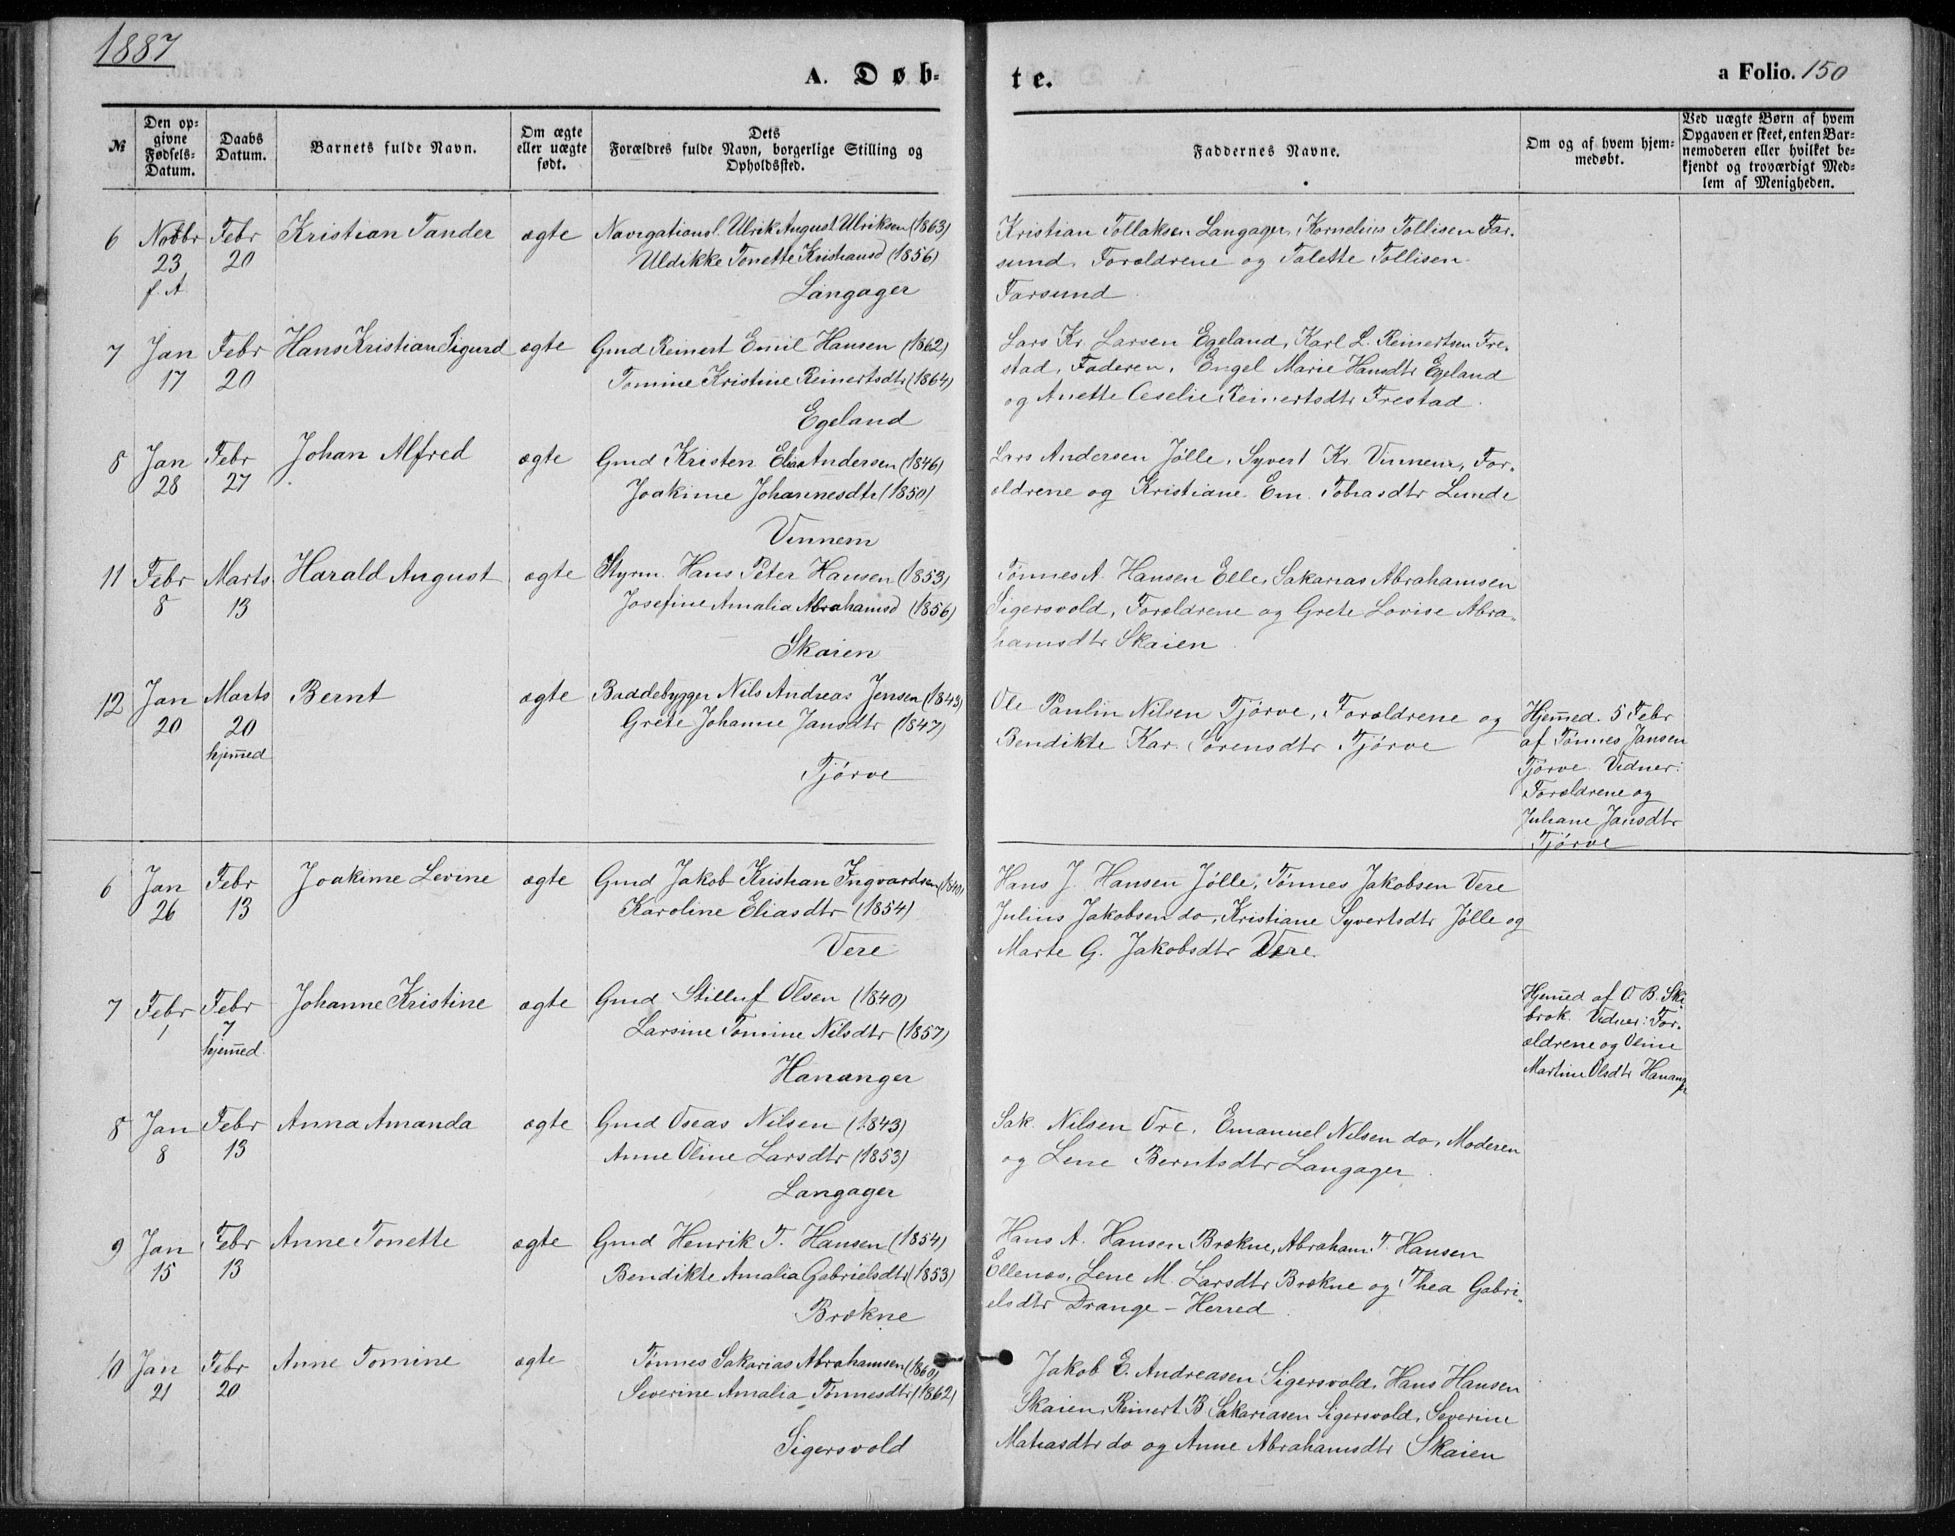 1887
A. Døb-
te.
a Folio. 150
№
Den op-
givne
Fødsels-
Datum.
Daabs
Datum.
Barnets fulde Navn.
Om ægte
eller uægte
født.
Dets
Forældres fulde Navn, borgerlige Stilling og
Opholdssted.
Faddernes Navne.
Om og af hvem hjem-
medøbt.
Ved uægte Børn af hvem
Opgaven er skeet, enten Bar-
nemoderen eller hvilket be-
kjendt og troværdigt Med-
lem af Menigheden.
6 Novbr Febr Kristian Tander ægte Navigationsl. Ulrik August Ulriksen (1863)
23 20 Uldikke Tonette Kristiansd (1856)
f. A Langager
Kristian Tollaksen Langager, Kornelius Tollisen Far-
sund, Forældrene og Talette Tollisen
Farsund
7 Jan Febr Hans Kristian Sigurd ægte Gmd Reinert Emil Hansen (1862)
17 20 Tomine Kristine Reinertsdtr (1864)
Egeland
Lars Kr. Larsen Egeland, Karl L. Reinertsen Fre-
stad, Faderen, Engel Marie Hansdtr Egeland
og Anette Ceselie Reinertsdtr Frestad
8 Jan Febr Johan Alfred ægte Gmd Kristen Elias Andersen (1846)
28 27 Joakime Johannesdtr (1850)
Vinnem
Lars Andersen Jølle, Syvert Kr. Vinnem, For-
ældrene og Kristiane Em. Tobiasdtr Lunde
11 Febr Marts Harald August ægte Styrm. Hans Peter Hansen (1853)
8 13 Josefine Amalia Abrahamsd (1856)
Skaien
Tønnes A. Hansen Elle, Sakarias Abrahamsen
Sigersvold, Forældrene og Grete Lovise Abra-
hamsdtr Skaien
12 Jan Marts Bernt ægte Baadebygger Nils Andreas Jensen (1843)
20 20 Grete Johanne Jansdtr (1847)
hjemmed Tjørve
Ole Paulin Nilsen Tjørve, Forældrene og
Bendikte Kar. Sørensdtr Tjørve
Hjemmed. 5 Febr
af Tønnes Jansen
Tjørve. Vidner:
Forældrene og
Juliane Jansdtr
Tjørve
6 Jan Febr Joakime Levine ægte Gmd Jakob Kristian Ingvardsen
26 13 Karoline Eliasdtr (1854)
Vere
Hans J. Hansen Jølle, Tønnes Jakobsen Vere
Julius Jakobsen do, Kristiane Syvertsdtr Jølle og
Marte G. Jakobsdtr Vere.
7 Febr Febr Johanne Kristine ægte Gmd Stilluf Olsen (1840)
1 7 Larsine Tomine Nilsdtr (1857)
hjemmed. Hananger
Hjemmed af O B. Ski-
brok. Vidner: For-
ældrene og Oline
Martine Olsdtr Hananger
8 Jan Febr Anna Amanda ægte Gmd Oseas Nilsen (1843)
8 13 Anne Oline Larsdtr (1853)
Langager
Sak. Nilsen Ore, Emanuel Nilsen do, Moderen
og Lene Berntsdtr Langager
9 Jan Febr Anne Tonette ægte Gmd Henrik T. Hansen (1854)
15 13 Bendikte Amalia Gabrielsdtr (1853)
Brækne
Hans A. Hansen Brækne, Abraham T. Hansen
Ellenæs, Lene M. Larsdtr Brækne og Thea Gabri-
elsdtr Drange - Herred
10 Jan Febr Anne Tomine ægte Tønnes Sakarias Abrahamsen (1860)
21 20 Severine Amalia Tønnesdtr (1862)
Sigersvold
Jakob E. Andreasen Sigersvold, Hans Hansen
Skaien, Reinert B Sakariasen Sigersvold, Severine
Matiasdtr do og Anne Abrahamsdtr Skaien